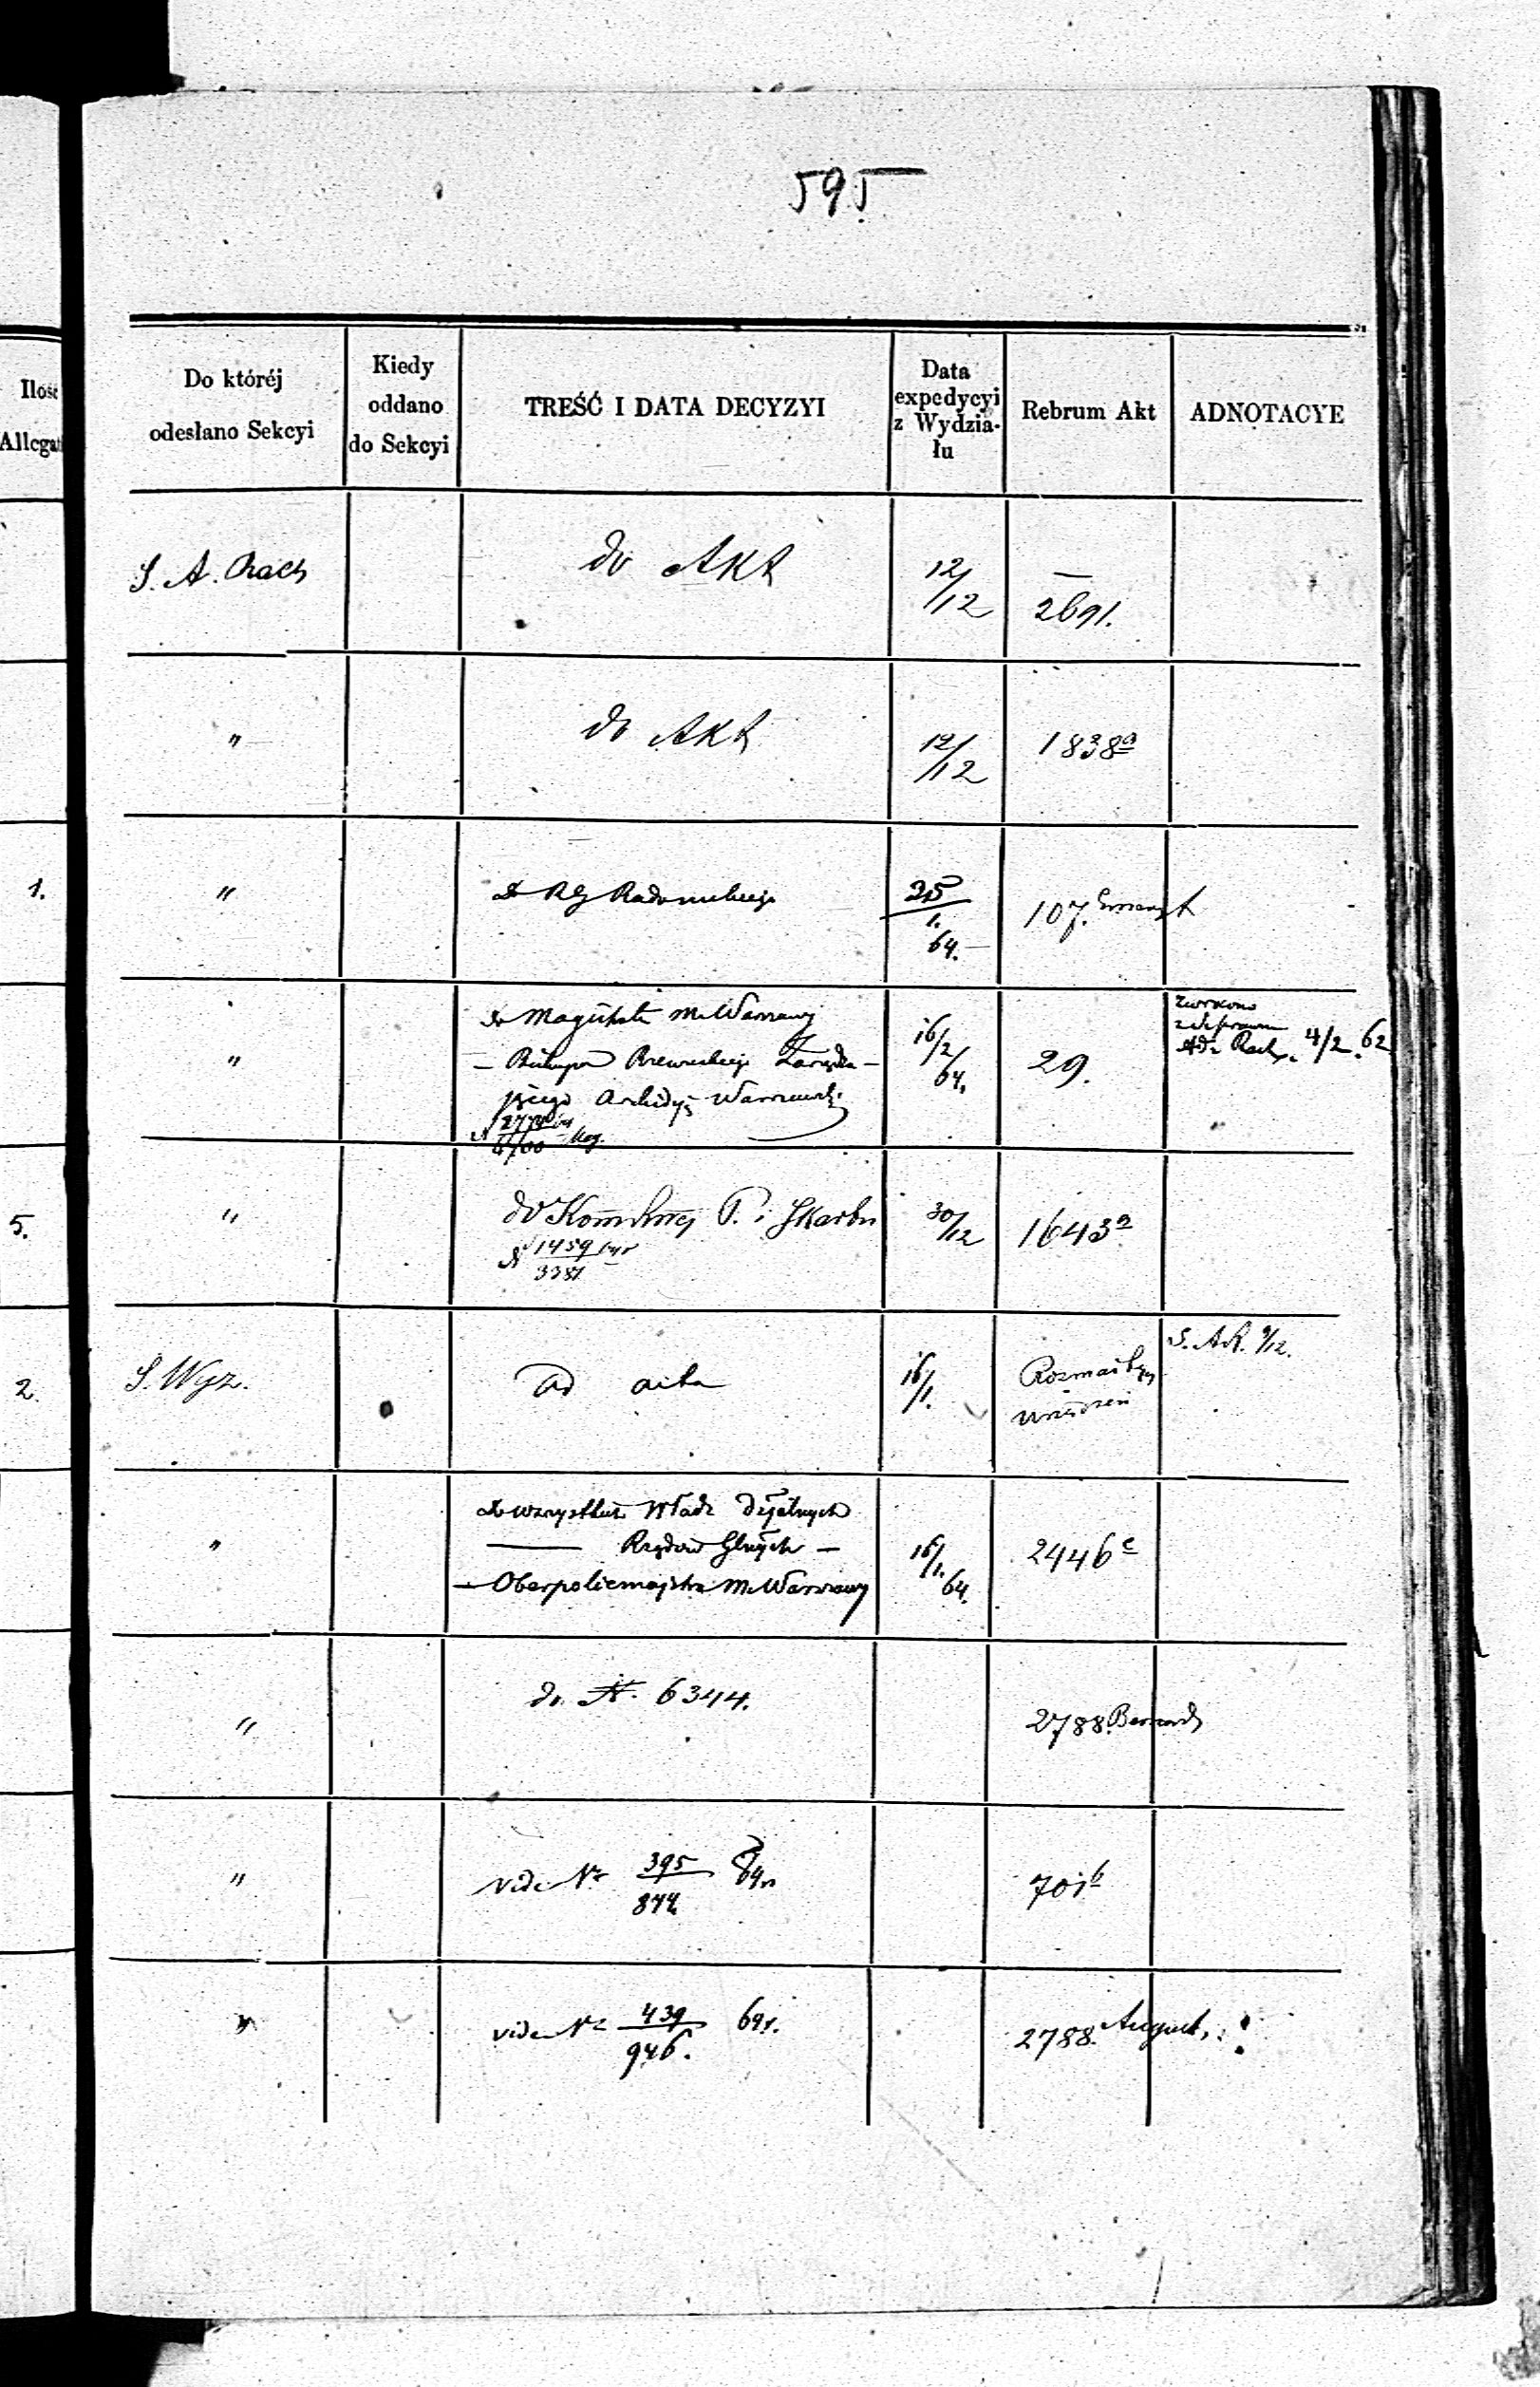 595
Ilość
Allegat
Do któréj
odesłano Sekcyi
Kiedy
oddano
do Sekcyi
TREŚĆ I DATA DECYZYI
Data
expedycyi
z Wydzia-
łu
Rebrum Akt
ADNOTACYE
S. A. Rach
do Akt
12/12
—
2691.
"
do Akt
12/12
1838a
1.
"
do RG Radomskiego
25
1.
64.
107.
"
do Magistratu M. Warszawy
— Biskupa Rzewuskiego Zarządza-
jącego Archidyec Warszawską.
16/2/64.
29.
zwrócono
4/2.62
5.
"
do Kommissyi P. i Skarbu
N 1459
3381
30/12
1643a
2.
S. Wyz.
ad acta
16/1.
Rozmaitych
urządzeń
S. A R. 9/12.
"
do wszystkich Władz
—— Rządów Gbnych —
— Oberpolicmajstra M. Warszawy
16/1.64.
2446c
"
do N. 6344.
2788. Bernard
"
vide Nr 395
874
64r
701b
"
vide Nr 439
946.
64r.
2788. August.